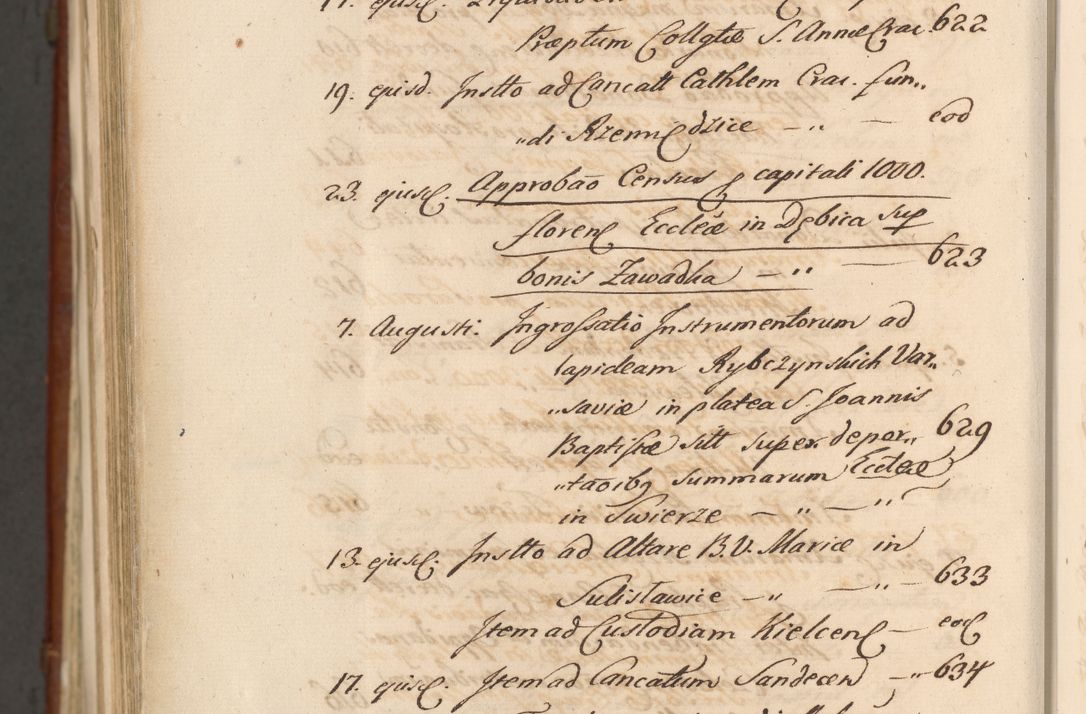 17. ejusd.
Præptum Collgtæ S. Annæ Crac. 622
19. ejusd. Instto ad Cancatt Cathlem Crac. fun„
„di Rzemiędzice — „ — eod
23. ejusd. Approbaõ Census p capitali 1000.
floren Eccleæ in Dębica sup
bonis Zawadka — „ — 623
7. Augusti. Ingrossatio Instrumentorum ad
lapideam Rybczynskich Var„
„saviæ in platea S. Joannis
Baptistæ sitt super depor„ 629
„taoibq summarum Eccleæ
in Swierze — „ — „ —
13. ejusd. Instto ad Altare B. V. Mariæ in
Sulisławice — „ — „ — 633
Item ad Custodiam Kielcens — eod
17. ejusd. Item ad Cancatum Sandecen — „ — 634